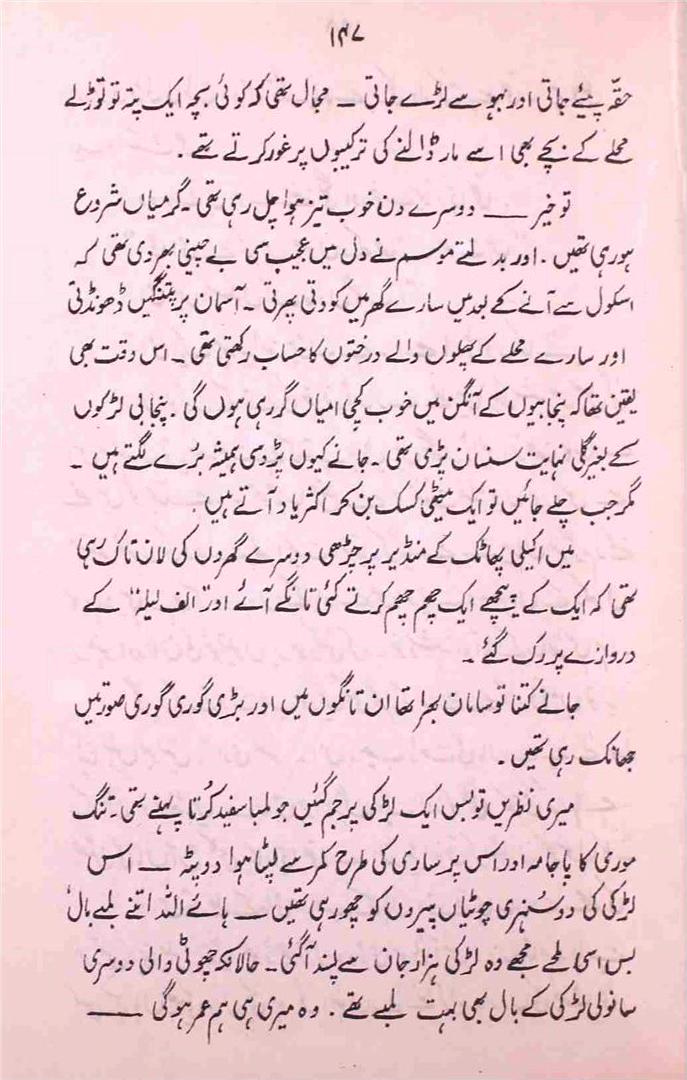 ۱۴۷
حقّہ پئیے جاتی اور بہو سے لڑے جاتی ۔ مجال تھی کہ کوئی بچہ ایک پتہ تو توڑ لے
محلے کے بچے بھی اسے مار ڈالنے کی ترکیبوں پر غور کرتے تھے ۔
تو خیر ـــ دوسرے دن خوب تیز ہوا چل رہی تھی ۔ گرمیاں شروع
ہو رہی تھیں ۔ اور بدلتے موسم نے دل میں عجیب سی بے چینی بھر دی تھی کہ
اسکول سے آنے کے بعد میں سارے گھر میں کودتی پھرتی ۔ آسمان پر پتنگیں ڈھونڈتی
اور سارے محلے کے پھلوں والے درختوں کا حساب رکھتی تھی ۔ اس وقت بھی
یقین تھا کہ پنجابیوں کے آنگن میں خوب کچی امیاں گر رہی ہوں گی ۔ پنجابی لڑکوں
کے بغیر گلی نہایت سنسان پڑی تھی ۔ جانے کیوں پڑوسی ہمیشہ بُرے لگتے ہیں ۔
مگر جب چلے جائیں تو ایک میٹھی کسک بن کر اکثر یاد آتے ہیں ۔
میں اکیلی پھاٹک کے منڈیر پر چڑھی دوسرے گھروں کی لان تاک رہی
تھی کہ ایک کے پیچھے ایک چھم چھم کرتے کئی تانگے آئے اور ”الف لیلہ“ کے
دروازے پر رک گئے ۔
جانے کتنا تو سامان بھرا تھا ان تانگوں میں اور بڑی گوری گوری صورتیں
جھانک رہی تھیں ۔
میری نظریں تو بس ایک لڑکی پر جم گئیں جو لمبا سفید کُرتا پہنے تھی ۔ تنگ
موری کا پاجامہ اور اس پر ساری کی طرح کمر سے لپٹا ہوا دوپٹہ ـــ اس
لڑکی کی دو سُنہری چوٹیاں پیروں کو چھو رہی تھیں ـــ ہائے اللہ اتنے لمبے بال
بس اسی لمحے مجھے وہ لڑکی ہزار جان سے پسند آگئی ۔ حالانکہ چھوٹی والی دوسری
سانولی لڑکی کے بال بھی بہت لمبے تھے ۔ وہ میری ہی ہم عمر ہوگی ـــ